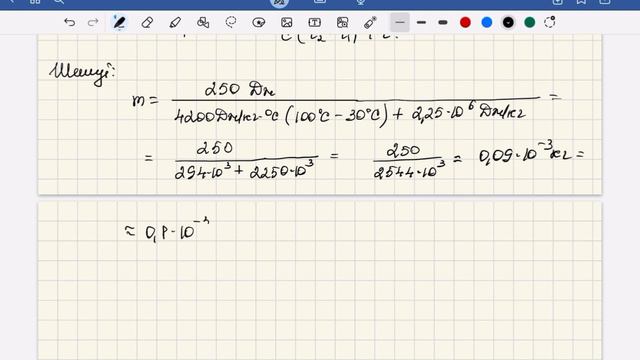 Шешуі:
m = 250 Дж / 4200 Дж/кг·°C (100°C − 30°C) + 2,25·10⁶ Дж/кг =
= 250 / 294·10³ + 2250·10³ = 250 / 2544·10³ ≈ 0,09·10⁻³ кг =
≈ 0,1·10⁻³